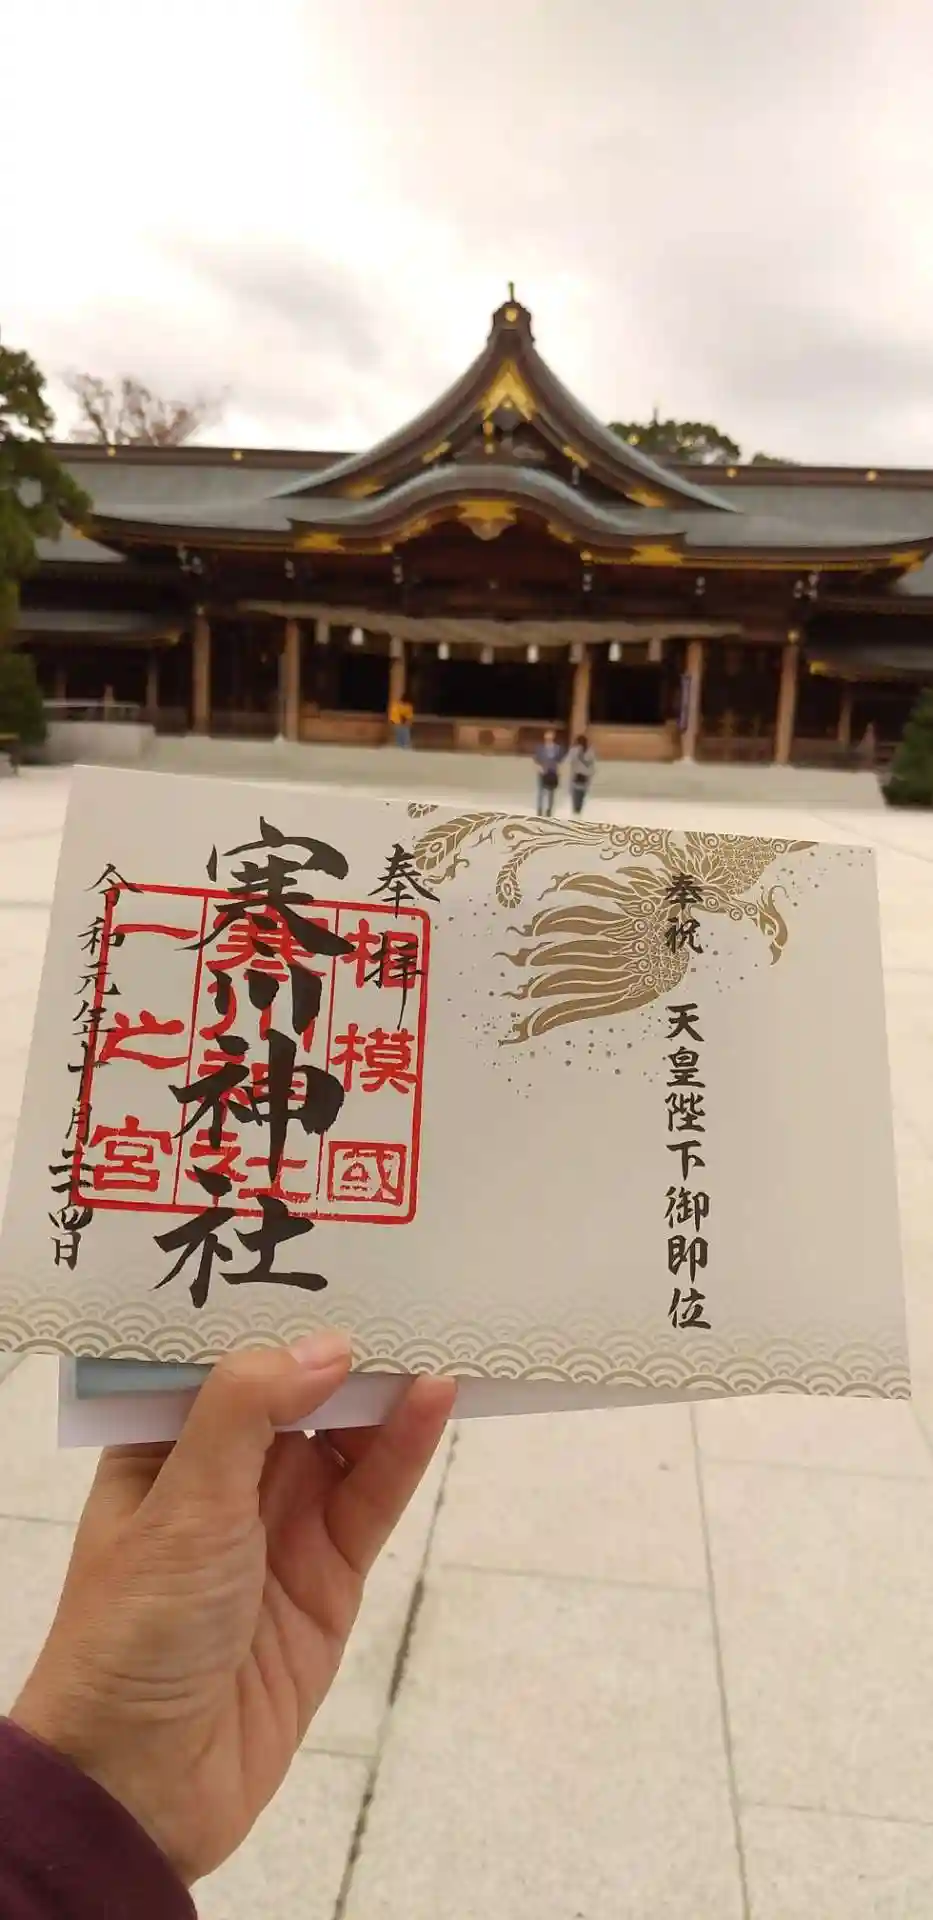 奉祝 天皇陛下御即位
奉拝
相模國
寒川神社
寒川神社
一之宮
令和元年十月二十四日